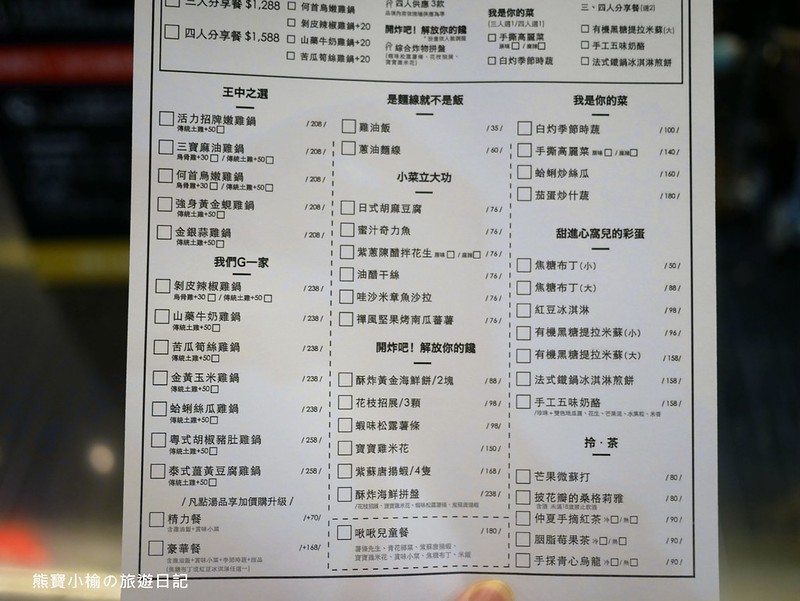 三人分享餐 $1,288
四人分享餐 $1,588
何首烏嫩雞鍋
剝皮辣椒雞鍋+20
山藥牛奶雞鍋+20
苦瓜筍絲雞鍋+20
四人供應 3款
開炸吧！解放你的饞
綜合炸物拼盤
我是你的菜
(三人選1/四人選1)
手撕高麗菜 原味 / 麻辣
白灼季節時蔬
三、四人分享餐(選2)
有機黑糖提拉米蘇(大)
手工五味奶酪
法式鐵鍋冰淇淋煎餅
王中之選
活力招牌嫩雞鍋 /208/
傳統土雞+50
三寶麻油雞鍋 /208/
烏骨雞+30 / 傳統土雞+50
何首烏嫩雞鍋 /208/
烏骨雞+30 / 傳統土雞+50
強身黃金蜆雞鍋 /208/
傳統土雞+50
金銀蒜雞鍋 /208/
傳統土雞+50
我們G一家
剝皮辣椒雞鍋 /238/
烏骨雞+30 / 傳統土雞+50
山藥牛奶雞鍋 /238/
傳統土雞+50
苦瓜筍絲雞鍋 /238/
傳統土雞+50
金黃玉米雞鍋 /238/
傳統土雞+50
蛤蜊絲瓜雞鍋 /238/
傳統土雞+50
粵式胡椒豬肚雞鍋 /258/
傳統土雞+50
泰式薑黃豆腐雞鍋 /258/
傳統土雞+50
/ 凡點湯品享加價購升級 /
精力餐 /+70/
含雞油飯+賞味小菜
豪華餐 /+168/
含雞油飯+賞味小菜+季節時蔬+甜品
(焦糖布丁或紅豆冰淇淋任選一)
是麵線就不是飯
雞油飯 /35/
蔥油麵線 /60/
小菜立大功
日式胡麻豆腐 /76/
蜜汁奇力魚 /76/
紫蔥陳醋拌花生 原味 / 麻辣 /76/
油醋干絲 /76/
哇沙米章魚沙拉 /76/
擇風堅果烤南瓜蕃薯 /76/
開炸吧！解放你的饞
酥炸黃金海鮮餅/2塊 /88/
花枝招展/3顆 /98/
蝦味松露薯條 /98/
寶寶雞米花 /150/
紫蘇唐揚蝦/4隻 /168/
酥炸海鮮拼盤 /238/
啾啾兒童餐 /180/
寶寶雞米花、賞味小菜、焦糖布丁、米餅
我是你的菜
白灼季節時蔬 /100/
手撕高麗菜 原味 / 麻辣 /140/
蛤蜊炒絲瓜 /160/
茄蛋炒什蔬 /180/
甜進心窩兒的彩蛋
焦糖布丁(小) /50/
焦糖布丁(大) /88/
紅豆冰淇淋 /98/
有機黑糖提拉米蘇(小) /96/
有機黑糖提拉米蘇(大) /158/
法式鐵鍋冰淇淋煎餅 /158/
手工五味奶酪 /158/
拎·茶
芒果微蘇打 /80/
披花瓣的桑格莉雅 /80/
仲夏手摘紅茶 冷 / 熱 /90/
胭脂莓果茶 冷 / 熱 /90/
手採青心烏龍 冷 / 熱 /90/
熊寶小榆の旅遊日記